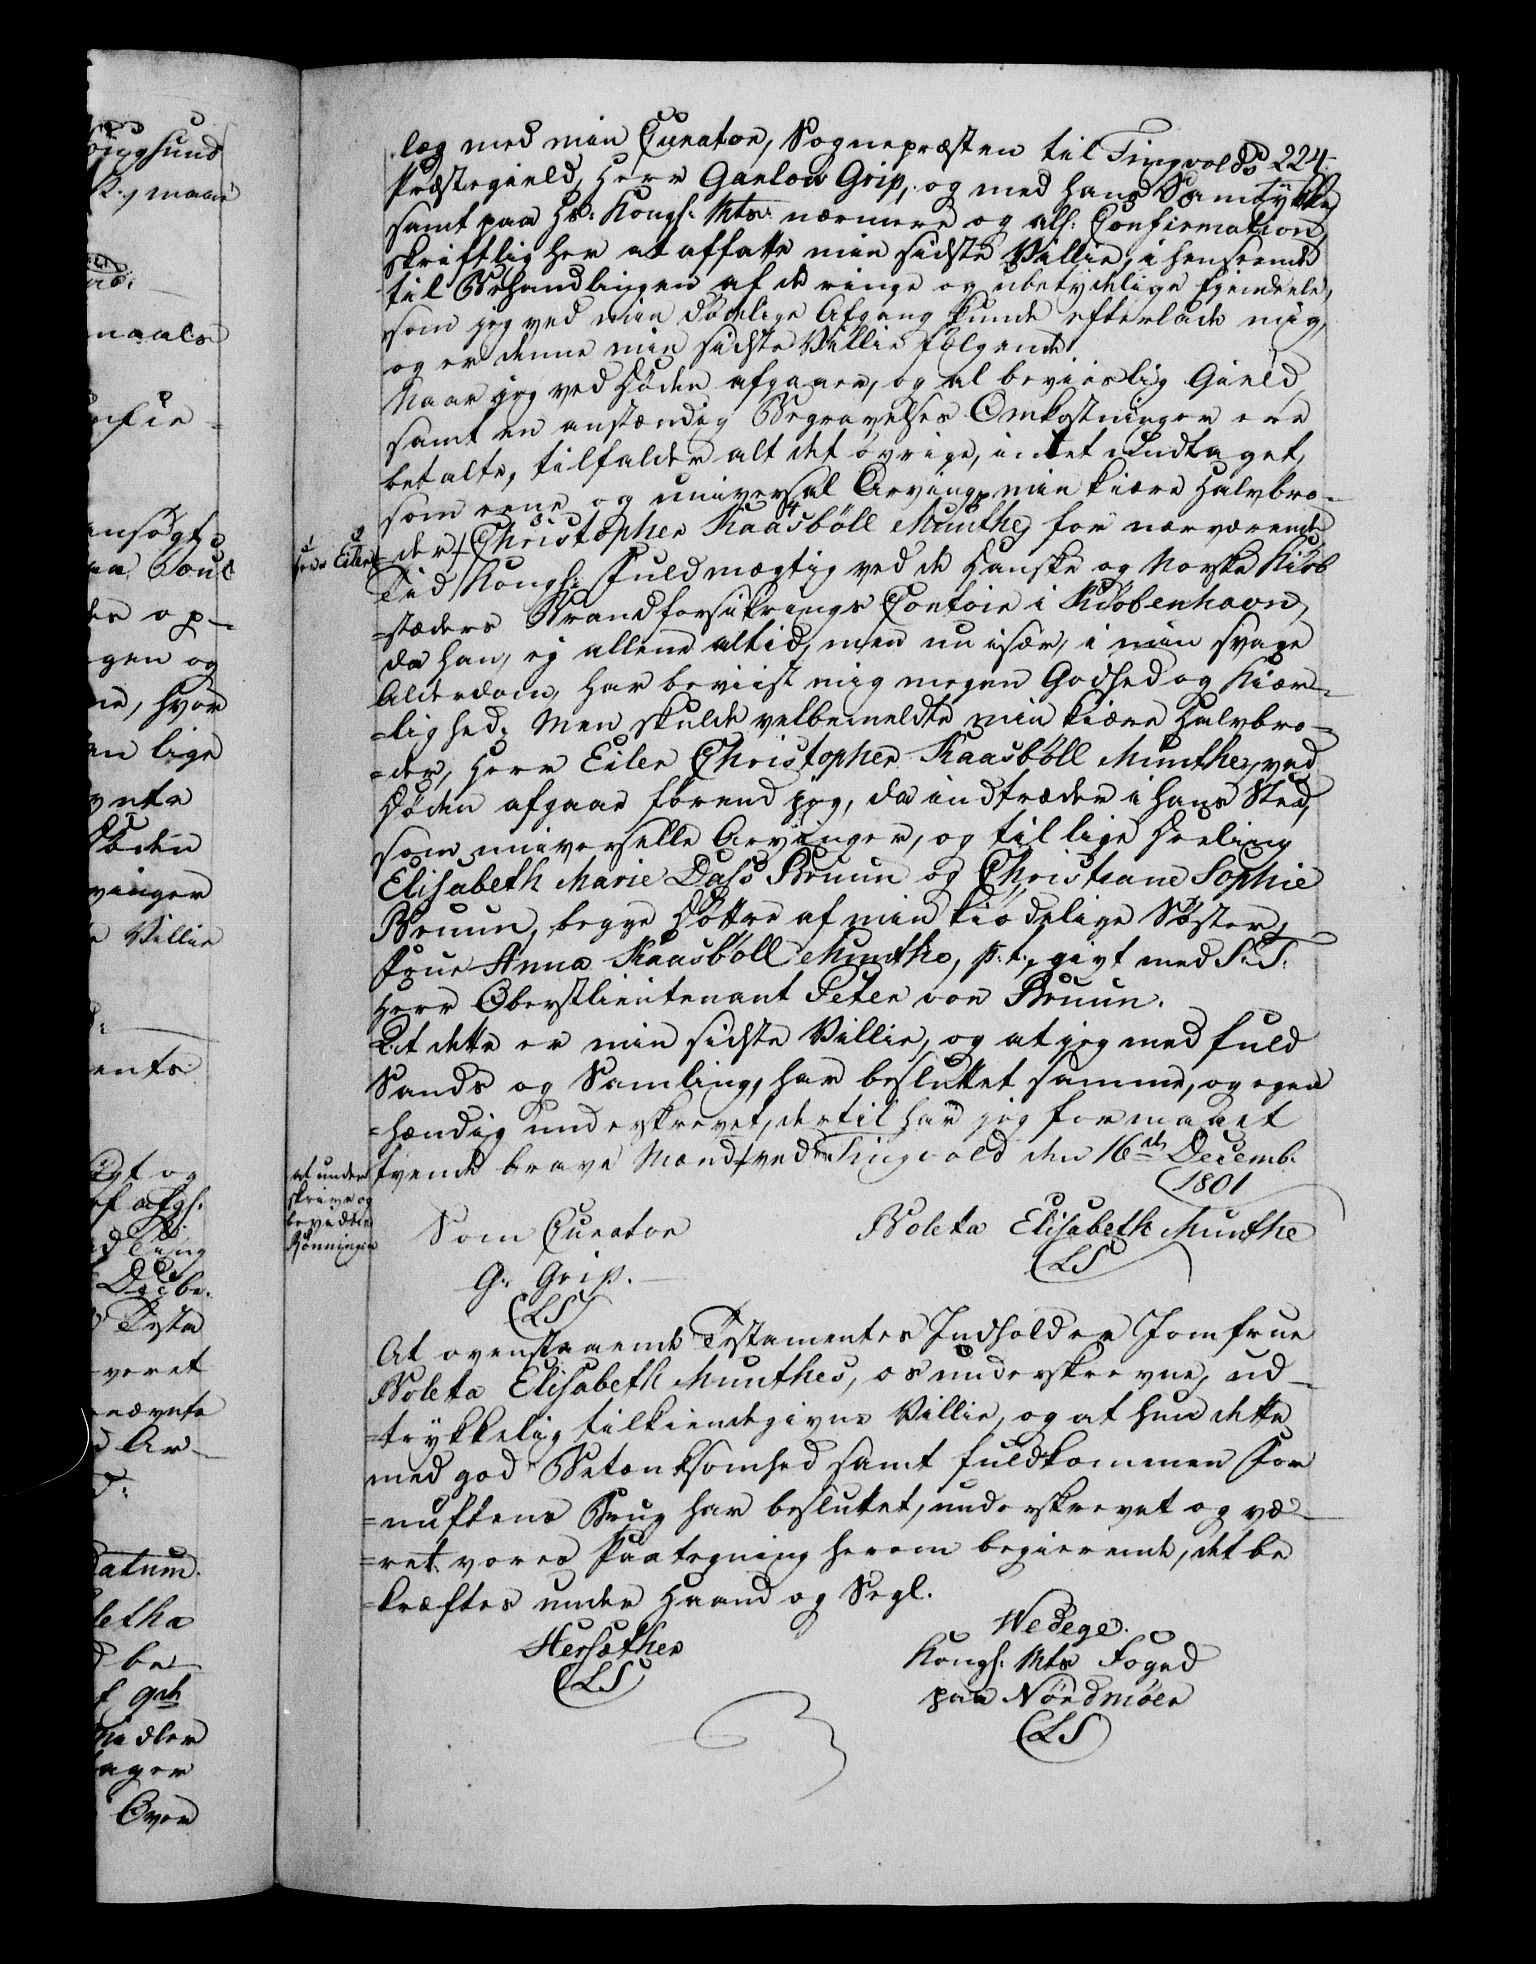 224
læg med min Curator, Sognepræsten til Tingvolds
Præstegield, Herr Ganlow Grip, og med hans Samtykke,
samt paa Hs: Kongl: Mts: nærmere og all: Confirmation,
skriftlig her at affatte min sidste Villie, i henseende
til Behandlingen af de ringe og ubetydelige Ejendele,
som jeg ved min dödelige Afgang kunde efterlade mig,
og er denne min sidste Villie fölgende:
Naar jeg ved Döden afgaaer, og al beviislig Gield,
samt en anstændig Begravelses Omkostninger ere
betalte, tilfalder alt det övrige, intet undtaget,
som eene og universal Arving, min kiære Halvbro-
=der, Christopher Kaasböll Munthe, for nærværende
Herr Eiler
Tid Kongl: Fuldmægtig ved de Danske og Norske Kiöb
=stæders Brandforsikrings Contoir i Kiöbenhavn,
da han, ej allene altid, men nu især, i min svage
Alderdom, har beviist mig megen Godhed og Kiær-
=lighed. Men skulde velbemeldte min kiære Halvbro-
=der, Herr Eiler Christopher Kaasböll Munthe, ved
Döden afgaae förend jeg, da indtræder i hans Sted,
som universelle Arvinger, og tillige Deeling
Elisabeth Marie Dass Bruun og Christiane Sophie
Bruun, begge Döttre af min kiödelige Söster,
Frue Anna Kaasböll Munthe, p. t. givt med S. T.
Herr Oberstlieutenant Peter von Bruun.
At dette er min sidste Villie, og at jeg med fuld
Sands og Samling, har besluttet samme, og egen
=hændig underskrevet, dertil har jeg formaaet
tvende brave Mænd ved Tingvold den 16de Decemb.
1801
at under
skrive og
bevidne
Rönningen
Som Curator
Noleta Elisabeth Munthe
(LS)
G: Grip.
(LS)
At ovenstaaende Testamentes Indhold er Jomfrue
Noleta Elisabeth Munthes, os underskrevne, ud-
=trykkelig tilkiendegivne Villie, og at hun dette
med god Betænksomhed samt fuldkommen For
=nuftens Brug har besluttet, underskrevet og væ-
=ret vores Paategning herom begierende, det be
=kræftes under Haand og Segl.
Hersæther
(LS)
Wedege.
Kongl: Mts Foged
paa Nördmöer
(LS)